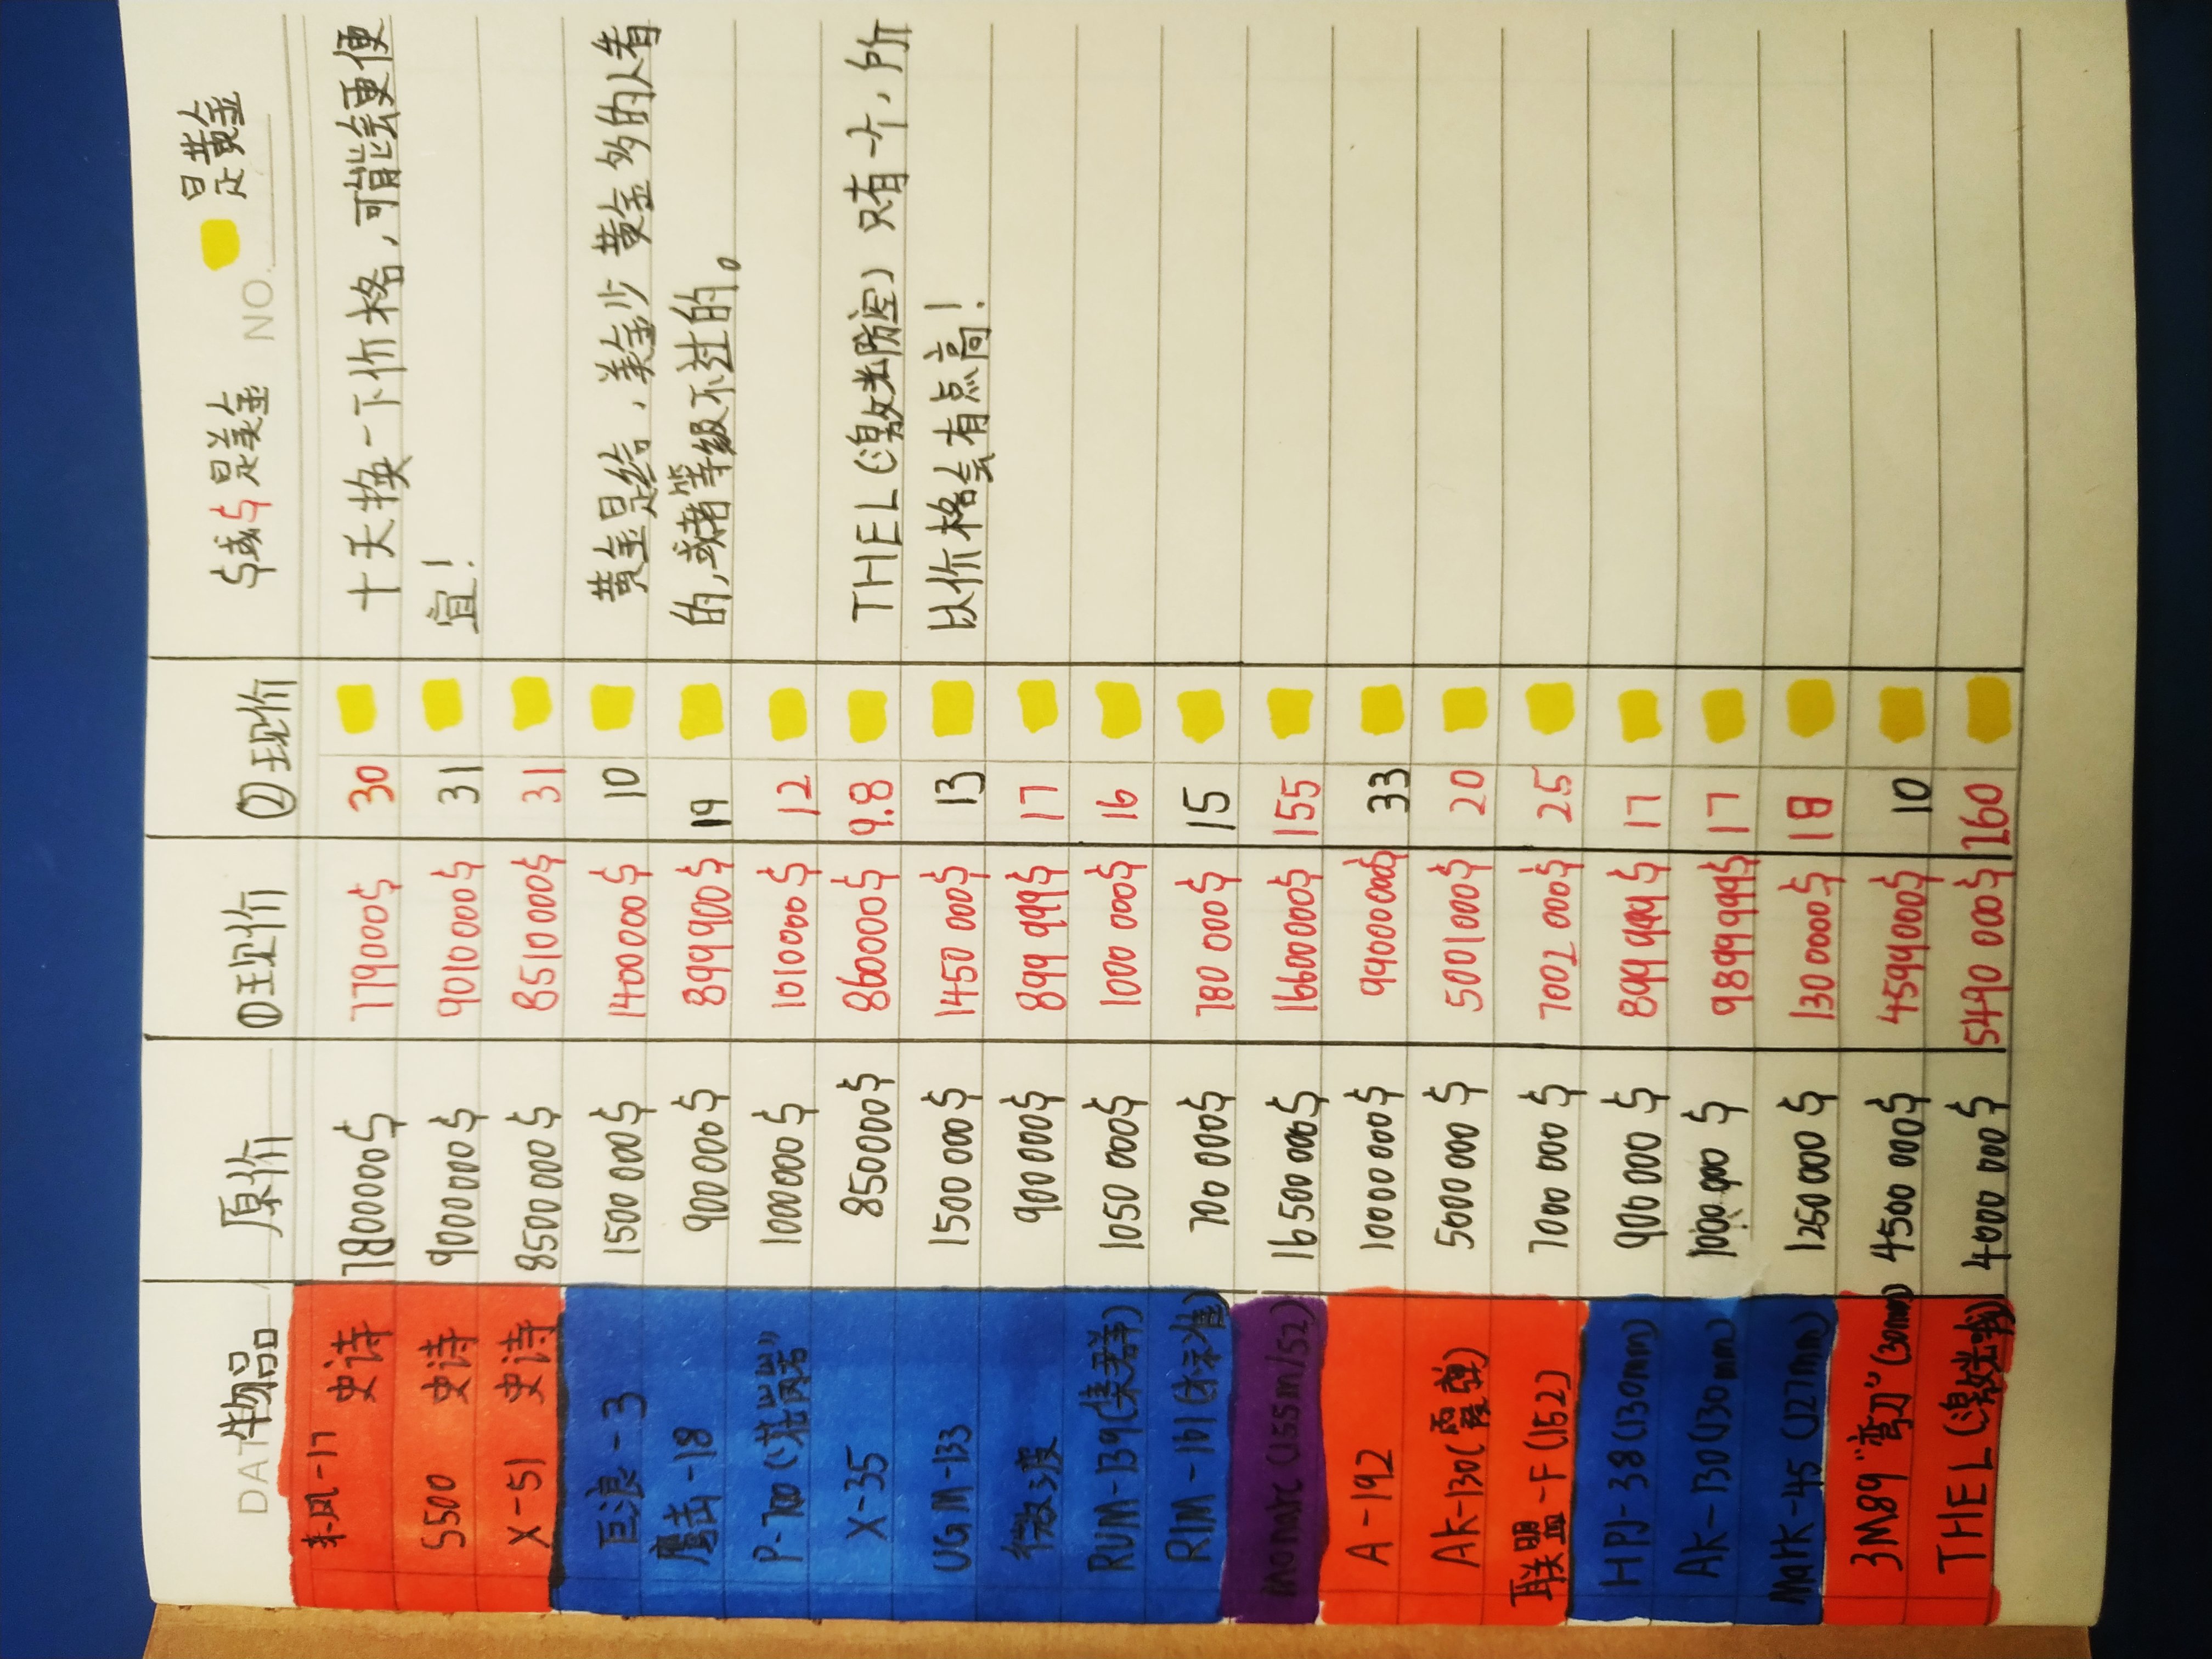 DATE 物品 原价 ①现价 ②现价 $或$是美金 NO. 是黄金
东风-17 史诗 7800000$ 7790000$ 30 十天换一下价格，可能会更便
5500 史诗 9000000$ 9010000$ 31 宜！
X-51 史诗 8500000$ 8510000$ 31
巨浪-3 1500000$ 1400000$ 10 黄金是给，美金少黄金多的人看
魔击-18 900000$ 899900$ 19 的，或者等级不过的。
P-700 1000000$ 1010000$ 12
X-35 850000$ 860000$ 9.8 THEL(激光防空)只有一个，所
UGM-133 1500000$ 1450000$ 13 以价格会有点高！
微波 900000$ 899999$ 17
RUM-139 1050000$ 1000000$ 16
RIM-161 700000$ 780000$ 15
monarc (155m/52) 16500000$ 16600000$ 155
A-192 10000000$ 9900000$ 33
AK-130 5000000$ 5001000$ 20
联盟-F(152) 7000000$ 7002000$ 25
HPJ-38(130mm) 900000$ 899999$ 17
AK-130(130mm) 1000000$ 989999$ 17
Mark-45 (127mm) 1250000$ 1300000$ 18
3M89 "弯刀"(30mm) 4500000$ 4599000$ 10
THEL 4000000$ 5490000$ 160